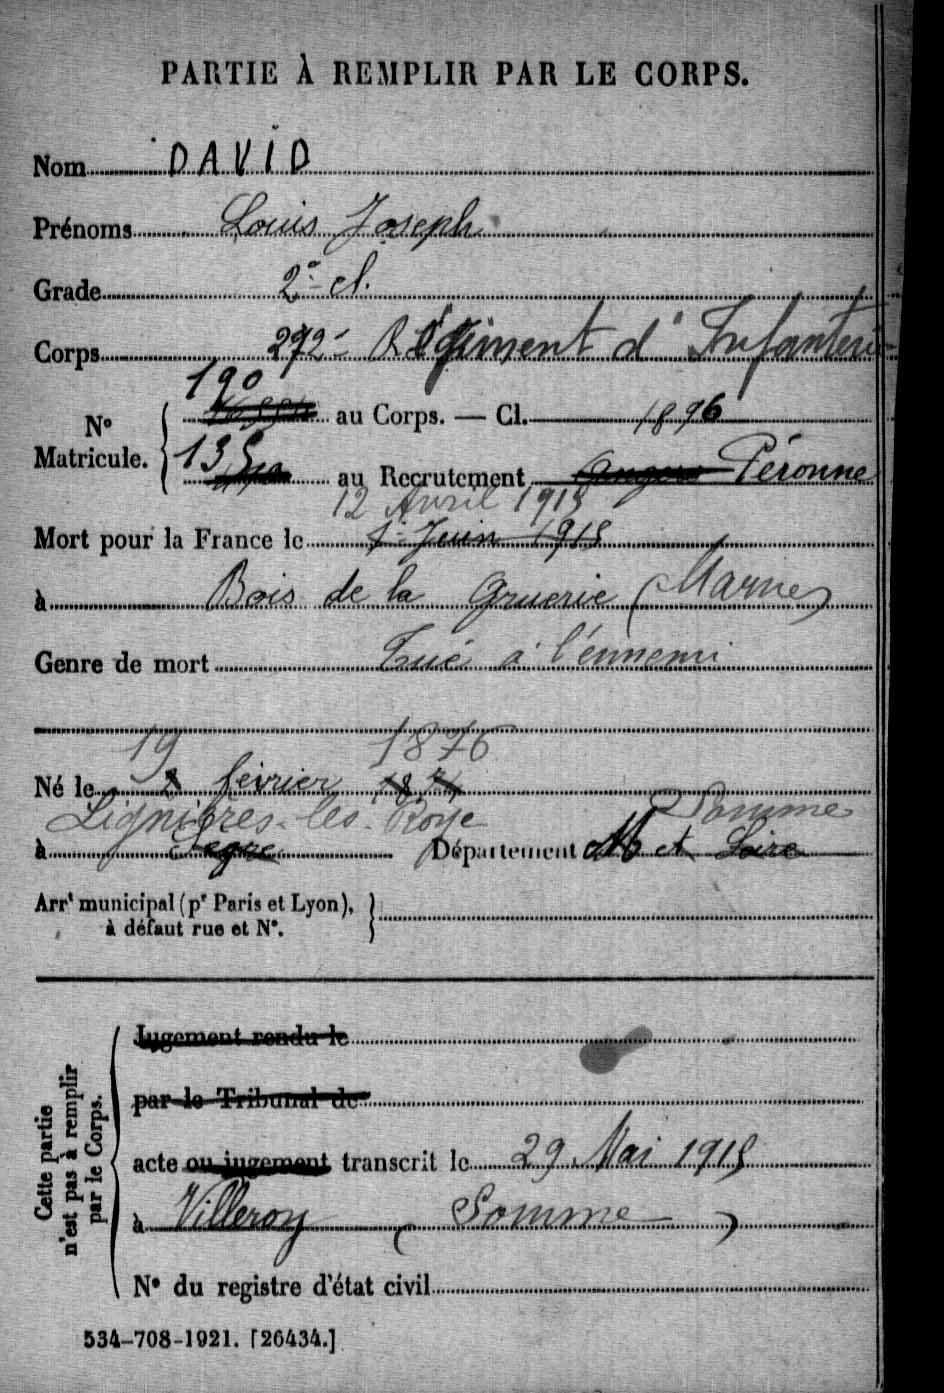 PARTIE À REMPLIR PAR LE CORPS.
Nom DAVID
Prénoms Louis Joseph
Grade 2e cl.
Corps 272e Régiment d'Infanterie
190
au Corps. — Cl. 1896
N° Matricule.
135
au Recrutement Angers Péronne
12 Avril 1915
Mort pour la France le 1er Juin 1915
à Bois de la Gruerie (Marne)
Genre de mort Tué à l'ennemi
19 1876
Né le 8 février 1874
Lignières-les-Roye Somme
à Segré Département M et Loire
Arrt municipal (pr Paris et Lyon),
à défaut rue et N°.
Cette partie
n'est pas à remplir
par le Corps.
Jugement rendu le
par le Tribunal de
acte ou jugement transcrit le 29 Mai 1915
à Villeroy (Somme)
N° du registre d'état civil
534-708-1921. [26434.]